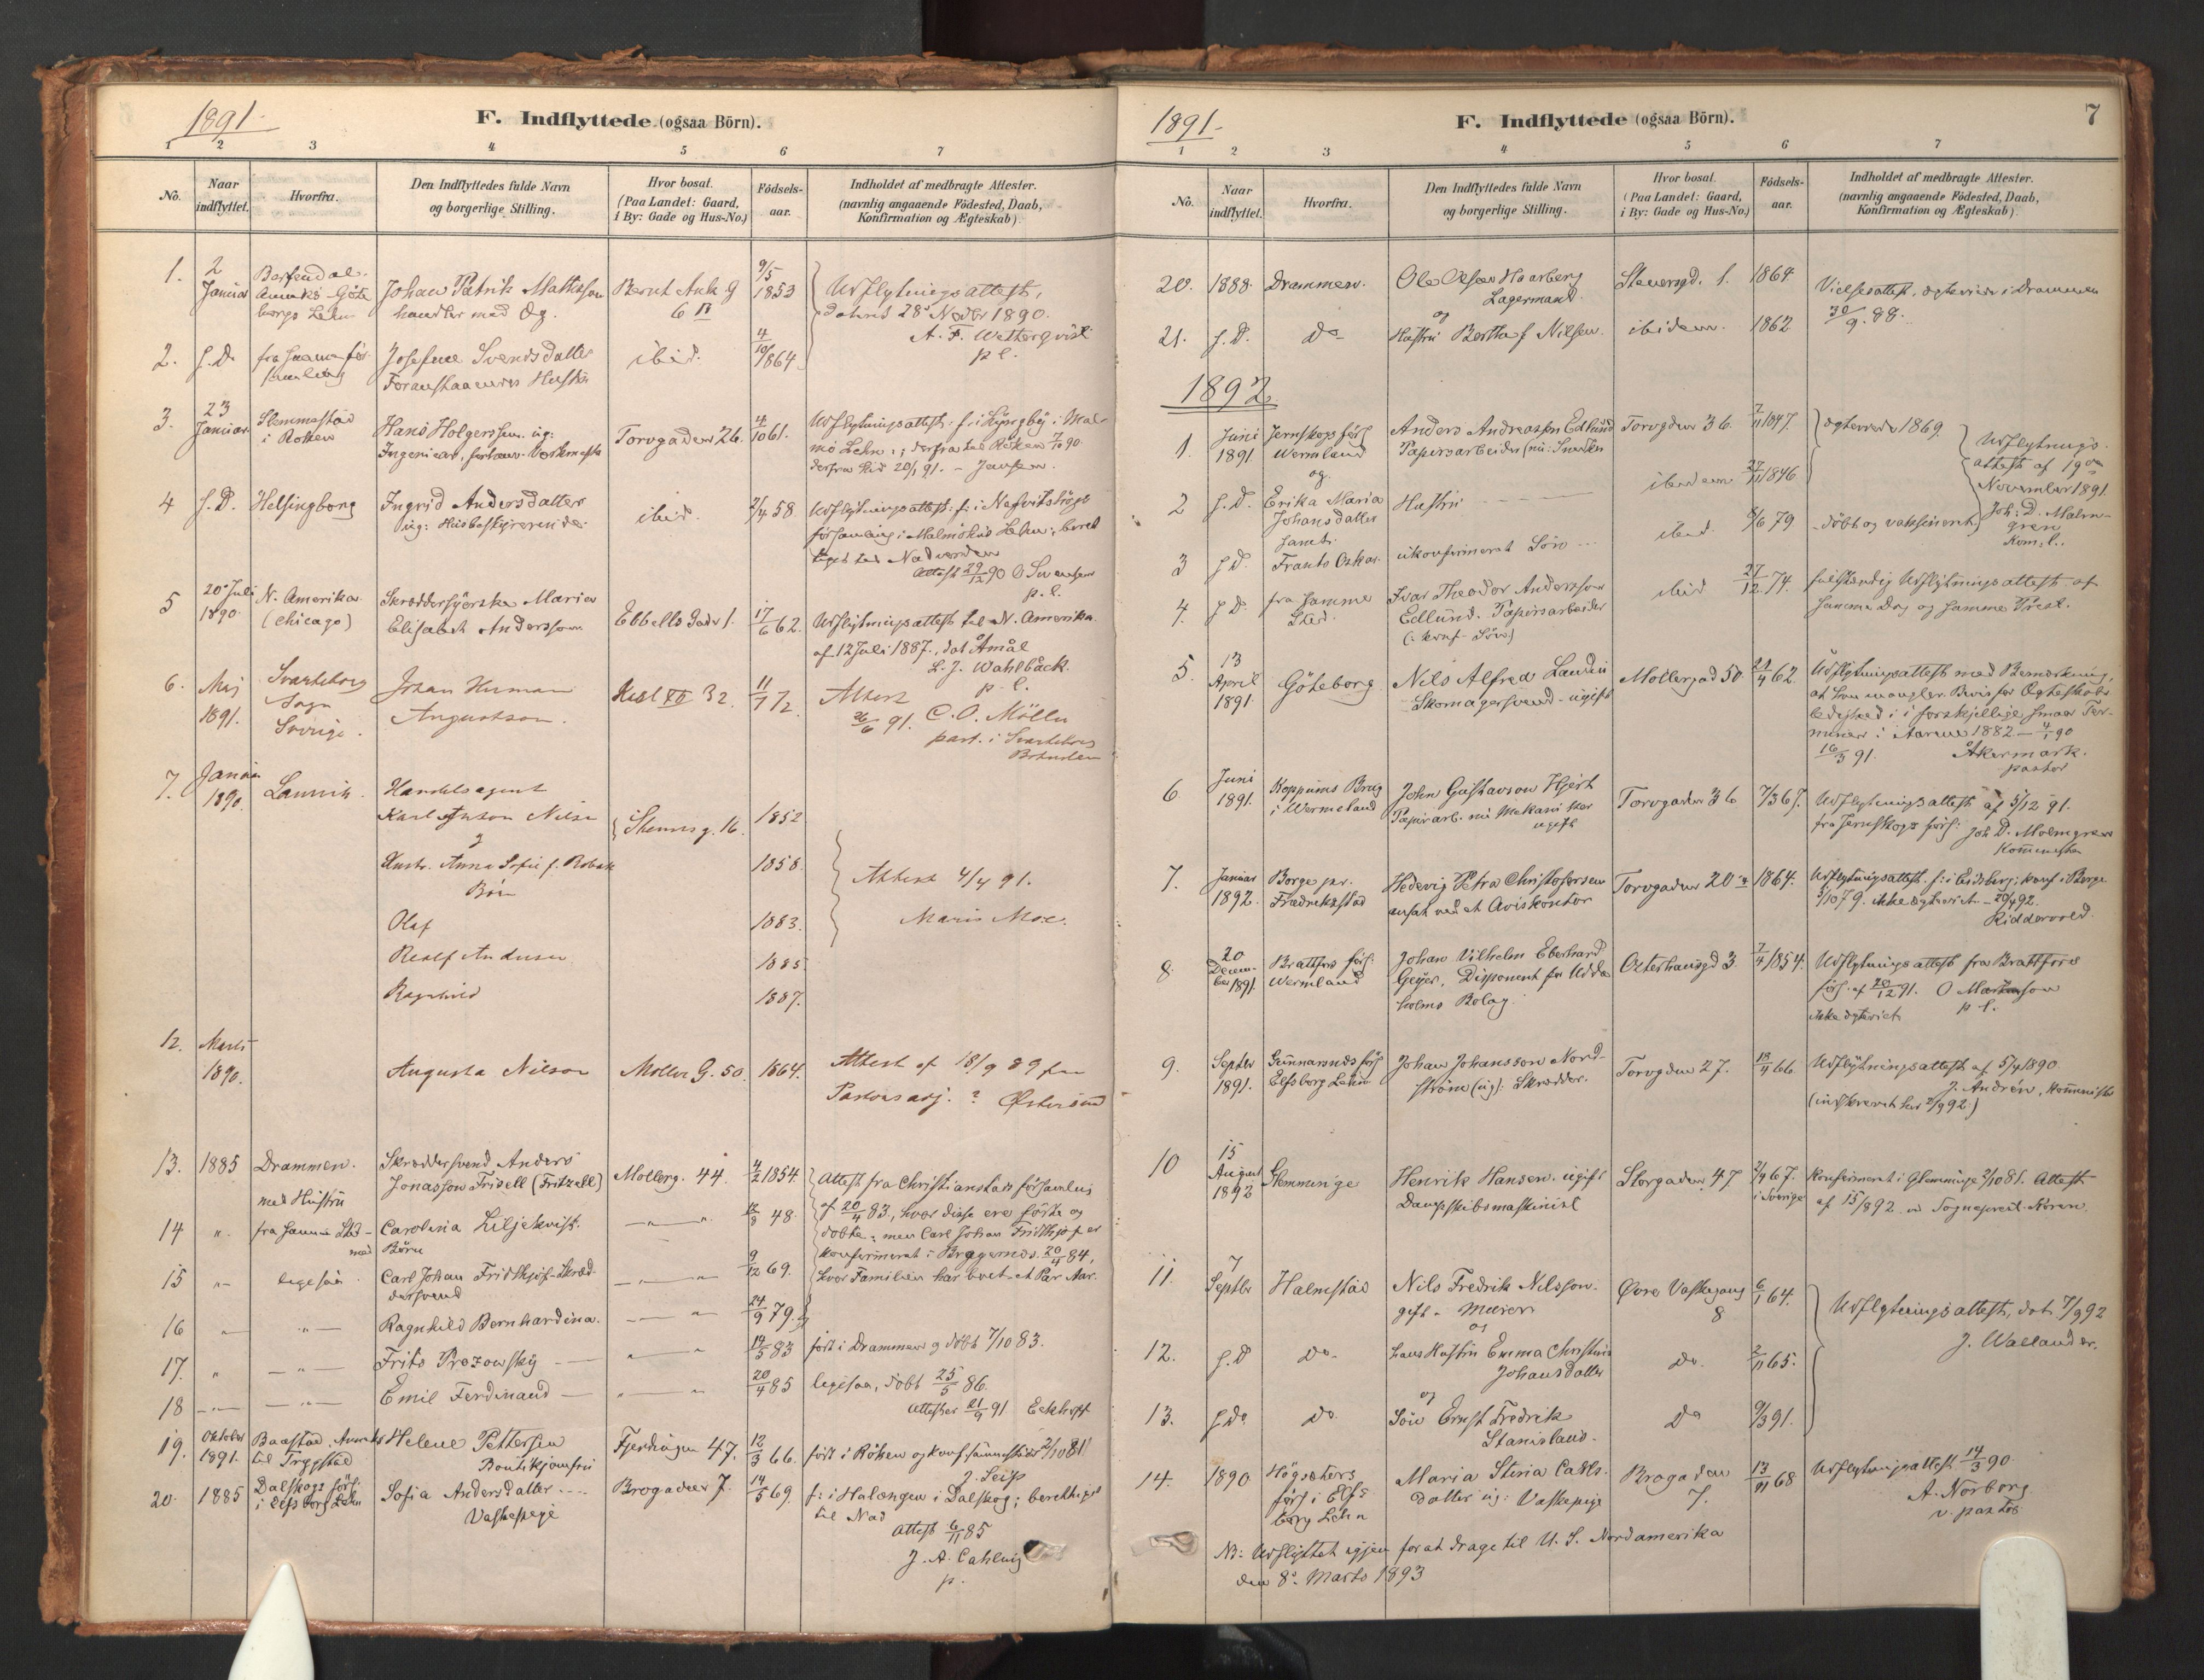 1891
F. Indflyttede (ogsaa Börn).
1 2 3 4 5 6 7
No. Naar indflyttet. Hvorfra. Den Indflyttedes fulde Navn og borgerlige Stilling. Hvor bosat. (Paa Landet: Gaard, i By: Gade og Hus-No.) Födsels-aar. Indholdet af medbragte Attester. (navnlig angaaende Födested, Daab, Konfirmation og Ægteskab).
1. 2 Januar Johan Patrik Mathsson 9/5 1853 Udflytningsattest,
handler med Æg. 6 B dateret 28de Novbr 1890.
A. F. Wetterqvist
p l.
2. s. D. fra samme för- Josefine Svendsdatter ibid. 4/10 1864
samling Foranstaaendes Hustru
3. 23 Januar Slemmestad Hans Holgerssen ug: Torvgaden 26. 4/10 61. Udflytningsattest: f. i
i Röken Ingeniør, mö Lehn; derfra til Röken 7/10 90
derfra hid 20/1 91. – Jensen.
4 s. D. Helsingborg Ingrid Andersdatter ibid. 2/4 58 Udflytningsattest: f. i
ug: Husbestyrerinde. församling i Malmöhus Lehn; beret
tiget til Nadverden
Attest 29/12 90 O Svensen
p. l.
5 20de Juli 1890 N. Amerika Skræddersyerske Maria Ebbells Gade 1. 17/6 62. Udflytningsattest til N. Amerika
(Chicago) Elisabet Andersson af 12 Juli 1887, dat Åmål
L. J. Wahlbäck.
p. l.
6. Maj 1891. Svarteborg Johan Herman 32. 11/7 72. Attest
Sogn Augustson. 26/6 91. C. O. Möller
Sverige. past. i Svarteborg
Bohuslen
7. Januar 1890. Larvik. Handelsagent
Karl Anson Nilsen Steners g. 16. 1852
&
Hustr. Anna Sofie f. 1858. Attest 4/4 91.
Börn
Olaf 1883. Maris Moe.
Rolf Andreas 1885.
Ragnhild 1887.
12. Marts
1890. Augusta Nilson Möller G. 50. 1864. Attest af 18/9 89 fra
Pastorsadj. ? Östersund
13. 1885 Drammen. Skræddersvend Anders Møllerg. 44. 4/2 1854. Attest fra Christianstads församling
med Hustru Jonasson Frisell (Fritzell) af 20/4 83, hvor disse ere födte og
14 " fra samme Sted – Carolina Liljekvist. – " – 48. döbte; men Carl Johan Fridthjof er
med Börn konfirmeret i Bragernes 20/4 84,
15 " ligesaa Carl Johan Fridthjof – Skræd- – " – 9/12 69. hvor Familien har boet et Par Aar.
dersvend
16 " – " – Ragnhild Bernhardina. – " – 24/9 79.
17. " – " – Frits Prozowsky – – " – 14/5 83 födt i Drammen og döbt 7/10 83.
18 – " – Emil Ferdinand – " – 20/4 85 ligesaa, döbt 25/5 86.
Attester 21/9 91 Eckhoff
19. Oktober 1891. Baastad, Annex Helene Pettersen Fjerdingen 47. 12/3 66. födt i Röken og konf. sammesteds 2/10 81
til Trygstad Boutikjomfru J. Seip
20. 1885 Dalskogs förs: Sofia Andersdatter Brogaden 7. 14/5 69. f: i Halængen i Dalskog; berettiget
i Elfsborg Lehn Vaskepige til Nad
Attest 6/11 85
J. A. Cahling
p.
1891
F. Indflyttede (ogsaa Börn).
7
1 2 3 4 5 6 7
No. Naar indflyttet. Hvorfra. Den Indflyttedes fulde Navn og borgerlige Stilling. Hvor bosat. (Paa Landet: Gaard, i By: Gade og Hus-No.) Födsels-aar. Indholdet af medbragte Attester. (navnlig angaaende Födested, Daab, Konfirmation og Ægteskab).
20. 1888. Drammen. Ole Olsen Haarberg Stenersgd. 1. 1864 Vielsesattest, ægteviede i Drammen
Lagermand. 30/9. 88.
og
21. s. D. Do Hustru Bertha f Nilsen. ibidem. 1862
1892
1. Juni 1891 Jernskogs förs Anders Andreasson Edlünd Torvgden 36. 7/11 1847. ægteviede 1869. Udflytnings-
Wermland Papirsarbeider (nu: Snedker attest af 19de
og November 1891
2 s. D. Erika Maria Hustru ibidem 27/11 1846 Joh: D. Malm-
Johansdatter gren
samt. Kom: l.
3 s. D. Frants Oskar. ukonfirmeret Sön ibid. 8/6 79. döbt og vaksineret
4. s. D. fra samme Ivar Theodor Andersson ibid 27/12. 74. fuldstændig Udflytningsattest af
Sted. Edlünd. Papirsarbeider samme Dag og samme Præst.
(: konf. Sön)
5. 13 April 1891 Göteborg Nils Alfred Lundin Möllergad 50. 24/4 62. Udflytningsattest med Bemærkning,
Skomagersvend – ugift at han mangler Bevis for Ægteskabs
ledighed i forskjellige smaa Ter-
miner i Aarene 1882 – 4/1 90
16/3 91. Åkermark.
pastor
6 Juni 1891. Koppums Brug John Gustavson Hjert Torvgaden 36 7/3 67. Udflytningsattest af 5/12 91.
i Wermeland Papirarb. nu Mekaniker fra Jernskogs förs: Joh D. Malmgren
ugift Komminister
7. Januar 1892. Borge pr. Hedevig Petra Christofersen Torvgaden 20 1864. Udflytningsattest. f: i Eidsberg; konf i Borge
Fredrikstad ansat ved et Aviskontor 5/10 79. ikke ægteviet. – 20/4 92.
Riddervold.
8. 20 Decem-ber 1891 Brattfors förs: Johan Vilhelm Eberhard Osterhausgd 3. 7/4 1854. Udflytningsattest fra Brattfors
Wermland Geijer, Disponent for Udde förs. af 20/12 91. O
holms Bolag. ikke ægteviet p l.
9. Septbr 1891. Gunnarsnäs förs Johan Johansson Nord- Torvgden 27. 18/4 66 Udflytningsattest af 5/4 1890
Elfsborg Lehn ström (ug). Skrædder. J. Andrén, Komminister
(indskrevet her 2/9 92.)
10 15 August 1892 Glemminge Henrik Hansen. ugift Storgaden 47 2/9 67. Konfirmeret i Glemminge 2/10 81. Attest
Dampskibsmaskinist i Sverige af 15/8 92. ved Sognepræst Norén.
11. 7 Septbr Halmstad Nils Fredrik Nilsson. Övre Vaskegang 6/1 64. Udflytningsattest, dat. 7/9 92
gift – Murer 8 J. Wallander.
og
12. s. D Do. hans Hustru Emma Christina Do. 2/11 65.
Johansdatter
og
13. s. Do. Do Sön Ernst Fredrik Do 9/3 91.
Stanislaus.
14. 1890 Högsäters Maria Stina Carls- Brogaden 13/11 68 Udflytningsattest 14/3 90.
förs i Elfs datter ug: Vaskepige 7. A. Norborg.
borg Lehn v. pastor
NB: Udflyttet igjen for at drage til U. S. Nordamerika
den 8de Marts 1893